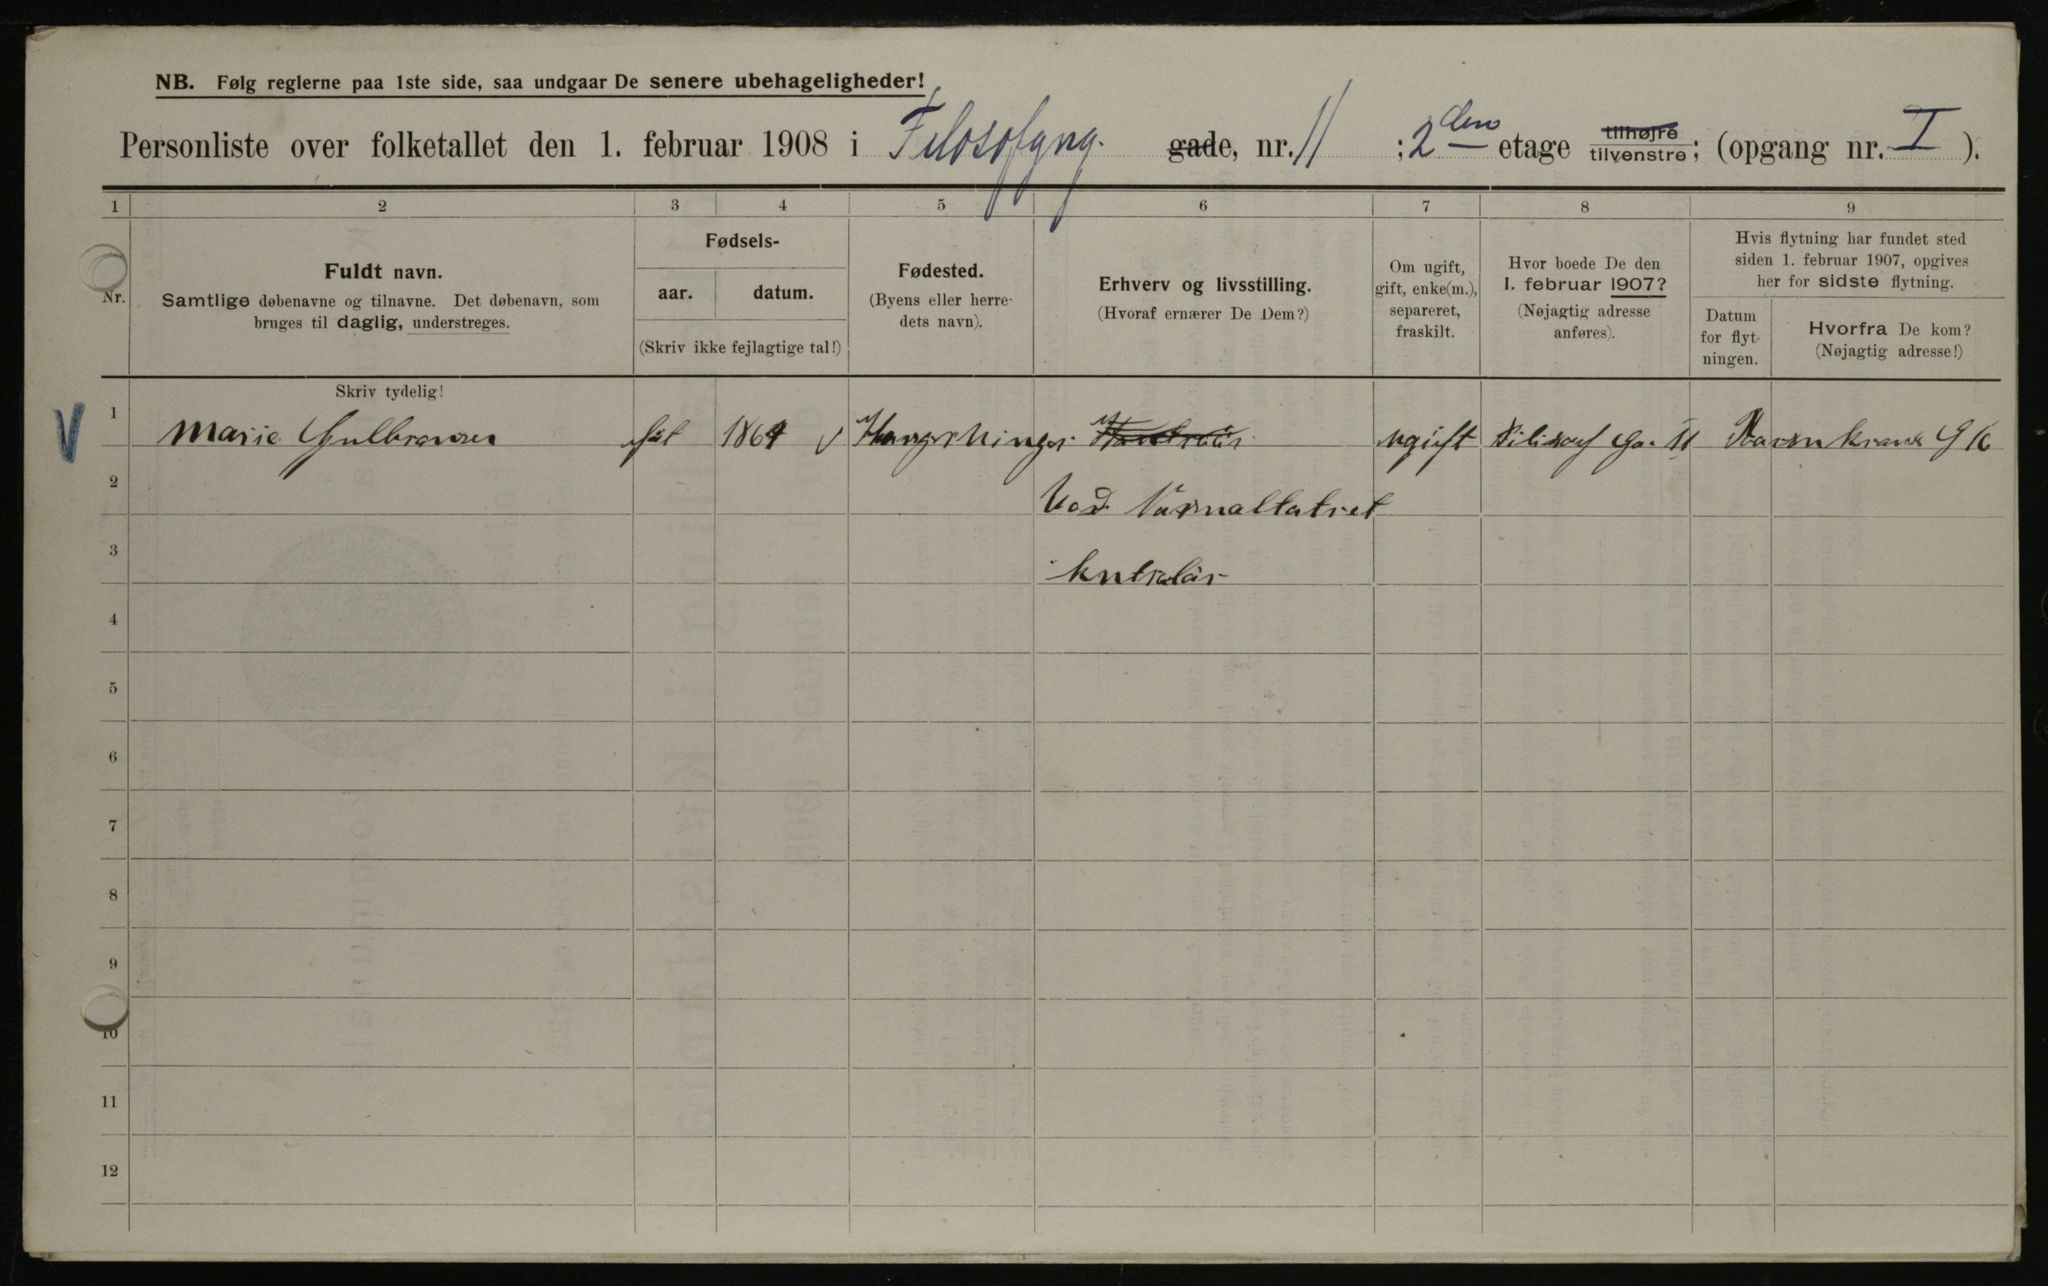 NB. Følg reglerne paa 1ste side, saa undgaar De senere ubehageligheder!
Personliste over folketallet den 1. februar 1908 i Filosofgng. gade, nr. 11 ; 2den etage tilhøjre tilvenstre; (opgang nr. I ).
1 2 3 4 5 6 7 8 9
Nr.
Fuldt navn.
Samtlige døbenavne og tilnavne. Det døbenavn, som
bruges til daglig, understreges.
Fødsels-
aar. datum.
(Skriv ikke fejlagtige tal!)
Fødested.
(Byens eller herre-
dets navn).
Erhverv og livsstilling.
(Hvoraf ernærer De Dem?)
Om ugift,
gift, enke(m.),
separeret,
fraskilt.
Hvor boede De den
1. februar 1907?
(Nøjagtig adresse
anføres).
Hvis flytning har fundet sted
siden 1. februar 1907, opgives
her for sidste flytning.
Datum
for flyt-
ningen.
Hvorfra De kom?
(Nøjagtig adresse!)
Skriv tydelig!
V 1 Marie Gulbransen 1864 ugift
2
3
4
5
6
7
8
9
10
11
12